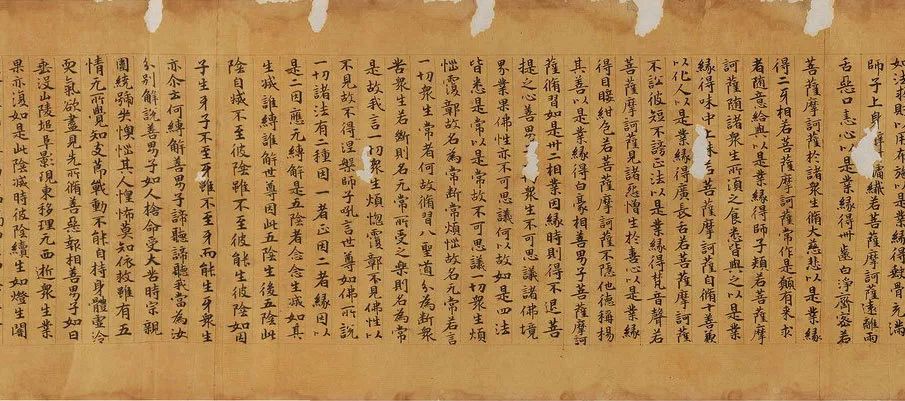 如法求財以用布施以是業緣得骨充滿
師子上身肘纖若菩薩摩訶薩遠離兩
舌惡口恚心以是業緣得卌齒白淨齊密若
菩薩摩訶薩於諸衆生脩大慈悲以是業緣
得二牙相若菩薩摩訶薩常作是願有來求
者隨意給與以是業緣得師子頰若菩薩摩
訶薩隨諸衆生所須之食悉皆與之以是業
緣得味中上味若菩薩摩訶薩自脩十善兼
以化人以是業緣得廣長舌若菩薩摩訶薩
不訟彼短不謗正法以是業緣得梵音聲若
菩薩摩訶薩見諸惡憎生於善心以是業緣
得目睫紺色若菩薩摩訶薩不隱他德稱揚
其善以是業緣得白豪相善男子菩薩摩訶
薩脩習如是卅二相業因緣時則得不退菩
提之心善男衆生不可思議諸佛境
界業果佛性亦不可思議何以故如是四法
皆悉是常以是常故不可思議一切衆生煩
惱覆鄣故名為常斷常煩惱故名无常若言
一切衆生常者何故脩習八聖道分為斷衆
苦衆生若斷則名无常所受之樂則名為常
是故我言一切衆生煩惱覆鄣不見佛性以
不見故不得涅槃師子吼言世尊如佛所說
一切諸法有二種因一者正因二者緣因以
是二因應无縛解是五陰者念念生滅如其
生滅誰縛誰解世尊因此五陰生後五陰此
陰自滅不至彼陰雖不至彼能生彼陰如因
子生牙子不至牙雖不至牙而能生牙衆生
亦尒云何縛解善男子諦聽諦聽我當為汝
分別解說善男子如人捨命受大苦時宗親
圍繞號哭懊惱其人惶怖莫知依救雖有五
情无所覺知支節戰動不能自持身體虛冷
煖氣欲盡見先所脩善惡報相善男子如日
垂沒山陵堆阜影現東移理无西逝衆生業
果亦復如是此陰滅時彼陰續生如燈生闇